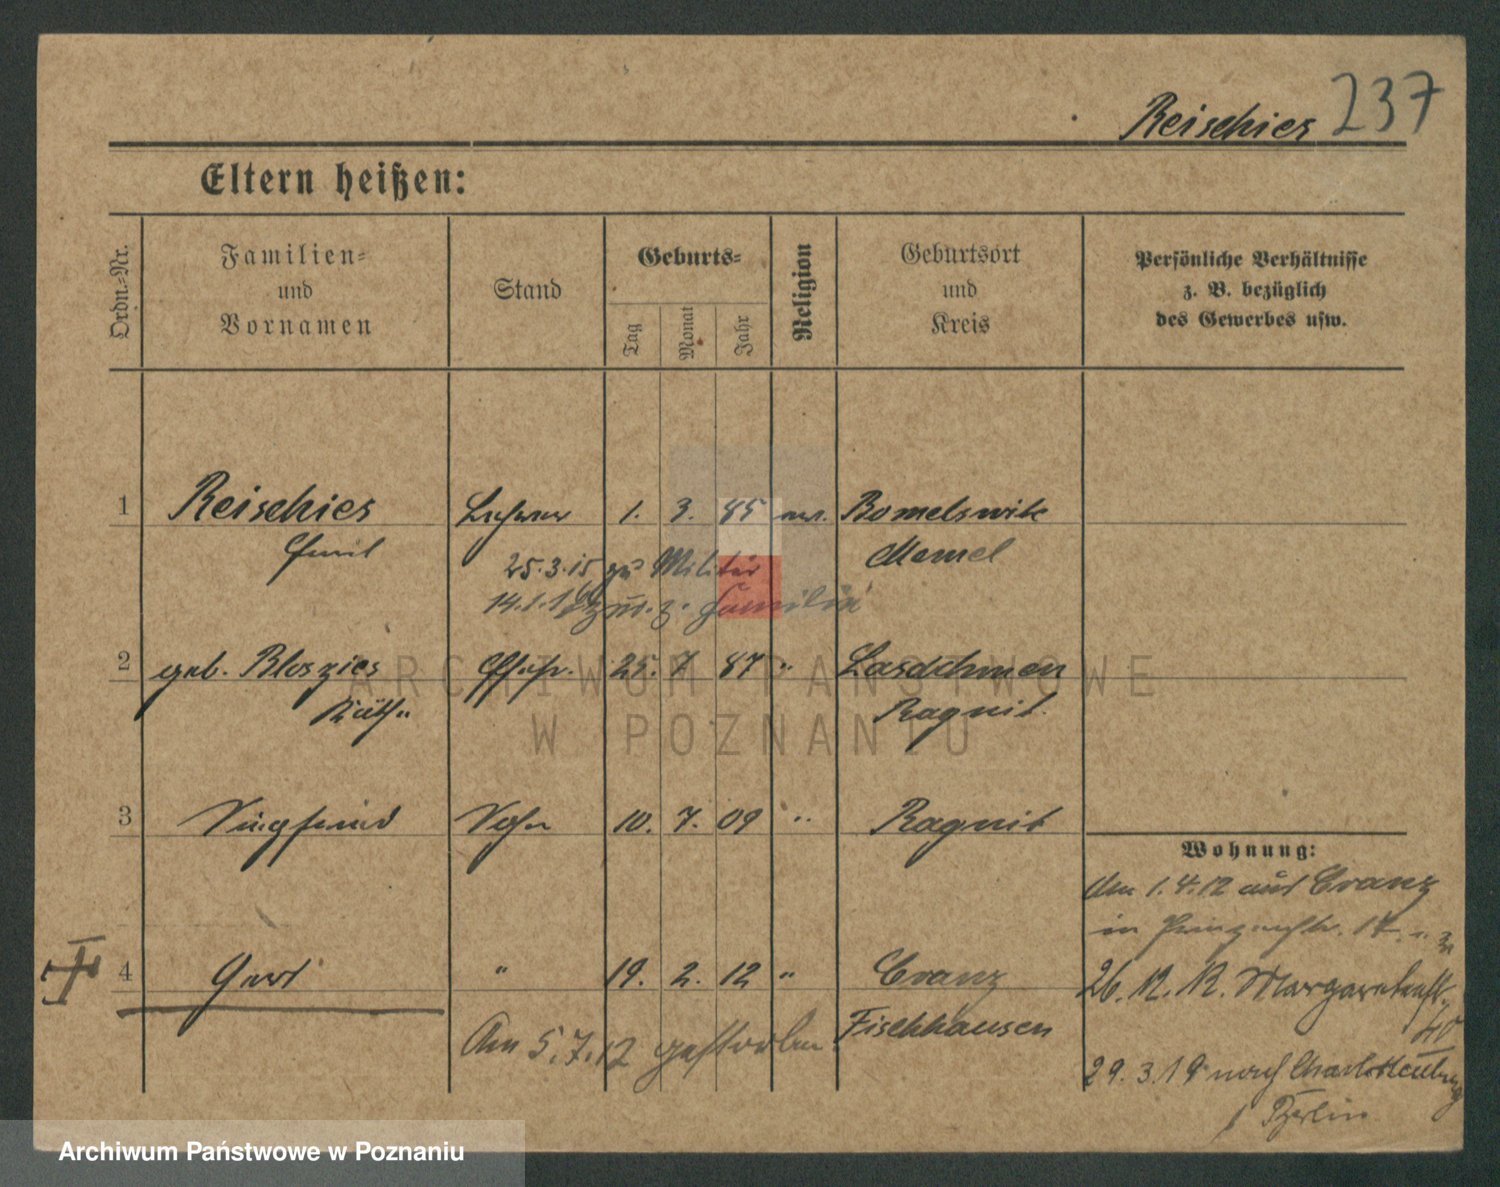 Reischies 237
Eltern heißen:
Ordn.-Nr.
Familien-
und
Vornamen
Stand
Geburts-
Tag
Monat
Jahr
Religion
Geburtsort
und
Kreis
Persönliche Verhältnisse
z. B. bezüglich
des Gewerbes usw.
1 Reischies Lehrer 1. 3. 85 ev. Bomelswitte
Emil Memel
25.3.15 zu Militär
14.1.1 zur. z. Familie
2 geb. Bloszies Ehefr. 25. 7 87 " Lasdehnen
Käthe Ragnit.
3 Siegfried Sohn 10. 7. 09 " Ragnit
Wohnung:
Am 1.4.12 aus Cranz
in 17
4 Gerd " 19. 2. 12 " Cranz
26. 12. 12. Margaretenstr.
40
Fischhausen
Am 5.7.12 gestorben.
29. 3. 19 nach Charlottenburg
Berlin.
ARCHIWUM PAŃSTWOWE
W POZNANIU
Archiwum Państwowe w Poznaniu